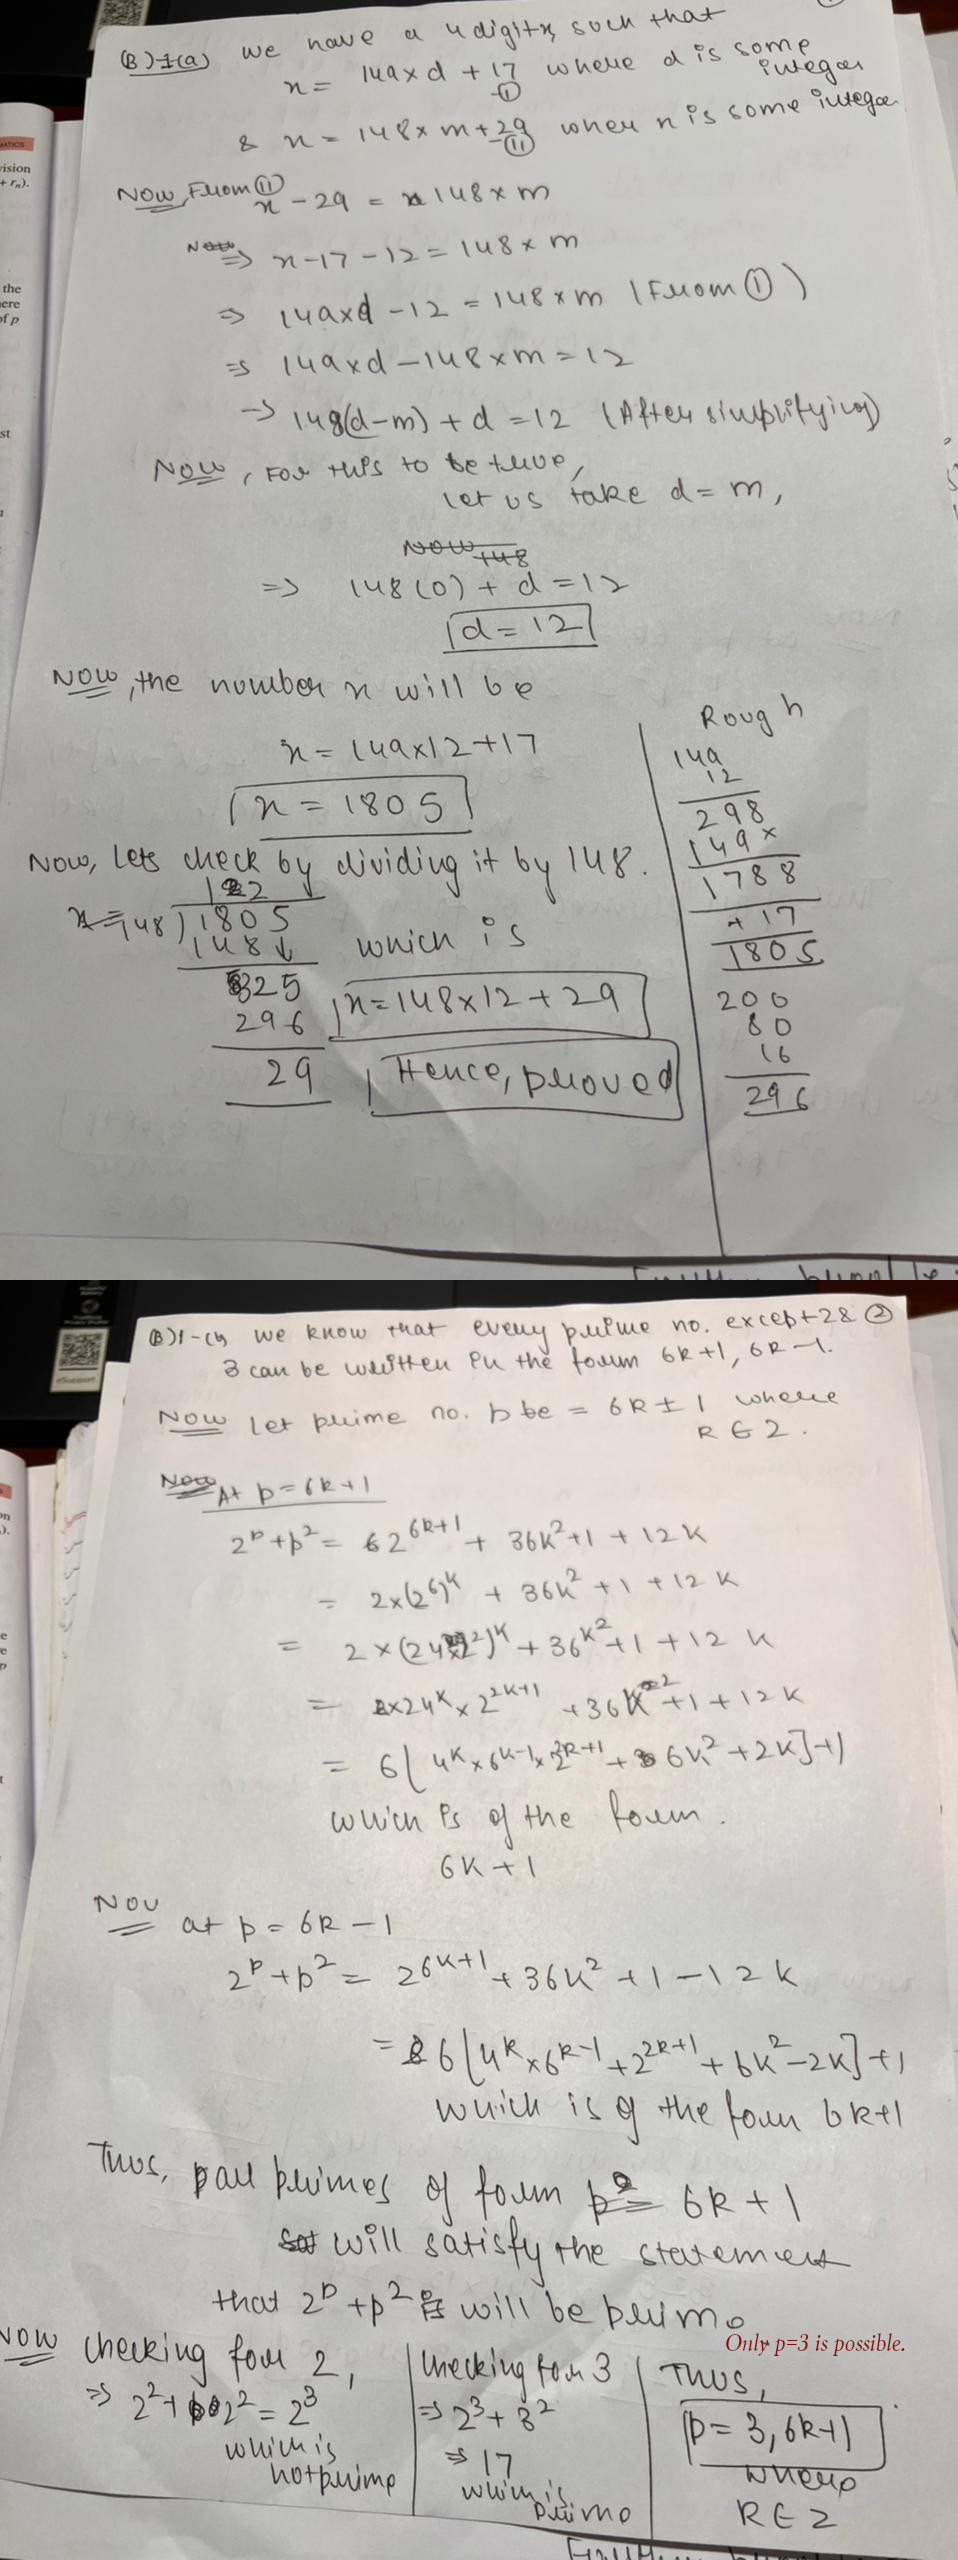 (B)-1(a) we have a 4 digit x, such that
x = 149×d + 17 where d is some integer
-①
& x = 148×m + 29 where n is some integer
-⑪
Now, From ⑪
x - 29 = 148×m
⇒ x-17-12 = 148×m
⇒ 149×d - 12 = 148×m (From ①)
⇒ 149×d - 148×m = 12
→ 148(d-m) + d = 12 (After simplifying)
Now, For this to be true,
let us take d = m,
⇒ 148(0) + d = 12
d = 12
Now, the number x will be
x = 149×12+17
x = 1805
Now, lets check by dividing it by 148.
12
148) 1805
148↓
325
296
29
which is
x = 148×12 + 29
Hence, proved
Rough
149
12
298
149×
1788
+17
1805
200
80
16
296
MATICS
ision
+ rₙ).
the
ere
of p
st
(B)1-(b) we know that every prime no. except 2 & ②
3 can be written in the form 6k+1, 6k-1.
Now let prime no. p be = 6k±1 where
k ∈ Z.
At p = 6k+1
2^p + p² = 2^{6k+1} + 36k² + 1 + 12k
= 2×(2⁶)^k + 36k² + 1 + 12k
= 2×(24×2²)^k + 36k² + 1 + 12k
= 2×24^k × 2^{2k+1} + 36k² + 1 + 12k
= 6[4^k × 6^{k-1} × 2^{2k+1} + 6k² + 2k] + 1
which is of the form.
6k+1
Now
at p = 6k-1
2^p + p² = 2^{6k+1} + 36k² + 1 - 12k
= 6[4^k × 6^{k-1} + 2^{2k+1} + 6k² - 2k] + 1
which is of the form 6k+1
Thus, all primes of form p = 6k+1
will satisfy the statement
that 2^p + p² will be prime
Only p=3 is possible.
Now checking for 2,
⇒ 2² + 2² = 2³
which is
not prime
Checking for 3
⇒ 2³ + 3²
⇒ 17
which is
prime
Thus,
p = 3, 6k+1
where
k ∈ Z